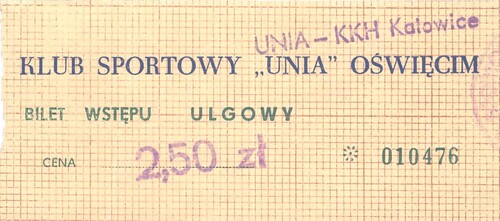 UNIA - KKH Katowice
KLUB SPORTOWY „UNIA” OŚWIĘCIM
BILET WSTĘPU ULGOWY
CENA 2,50 zł * 010476